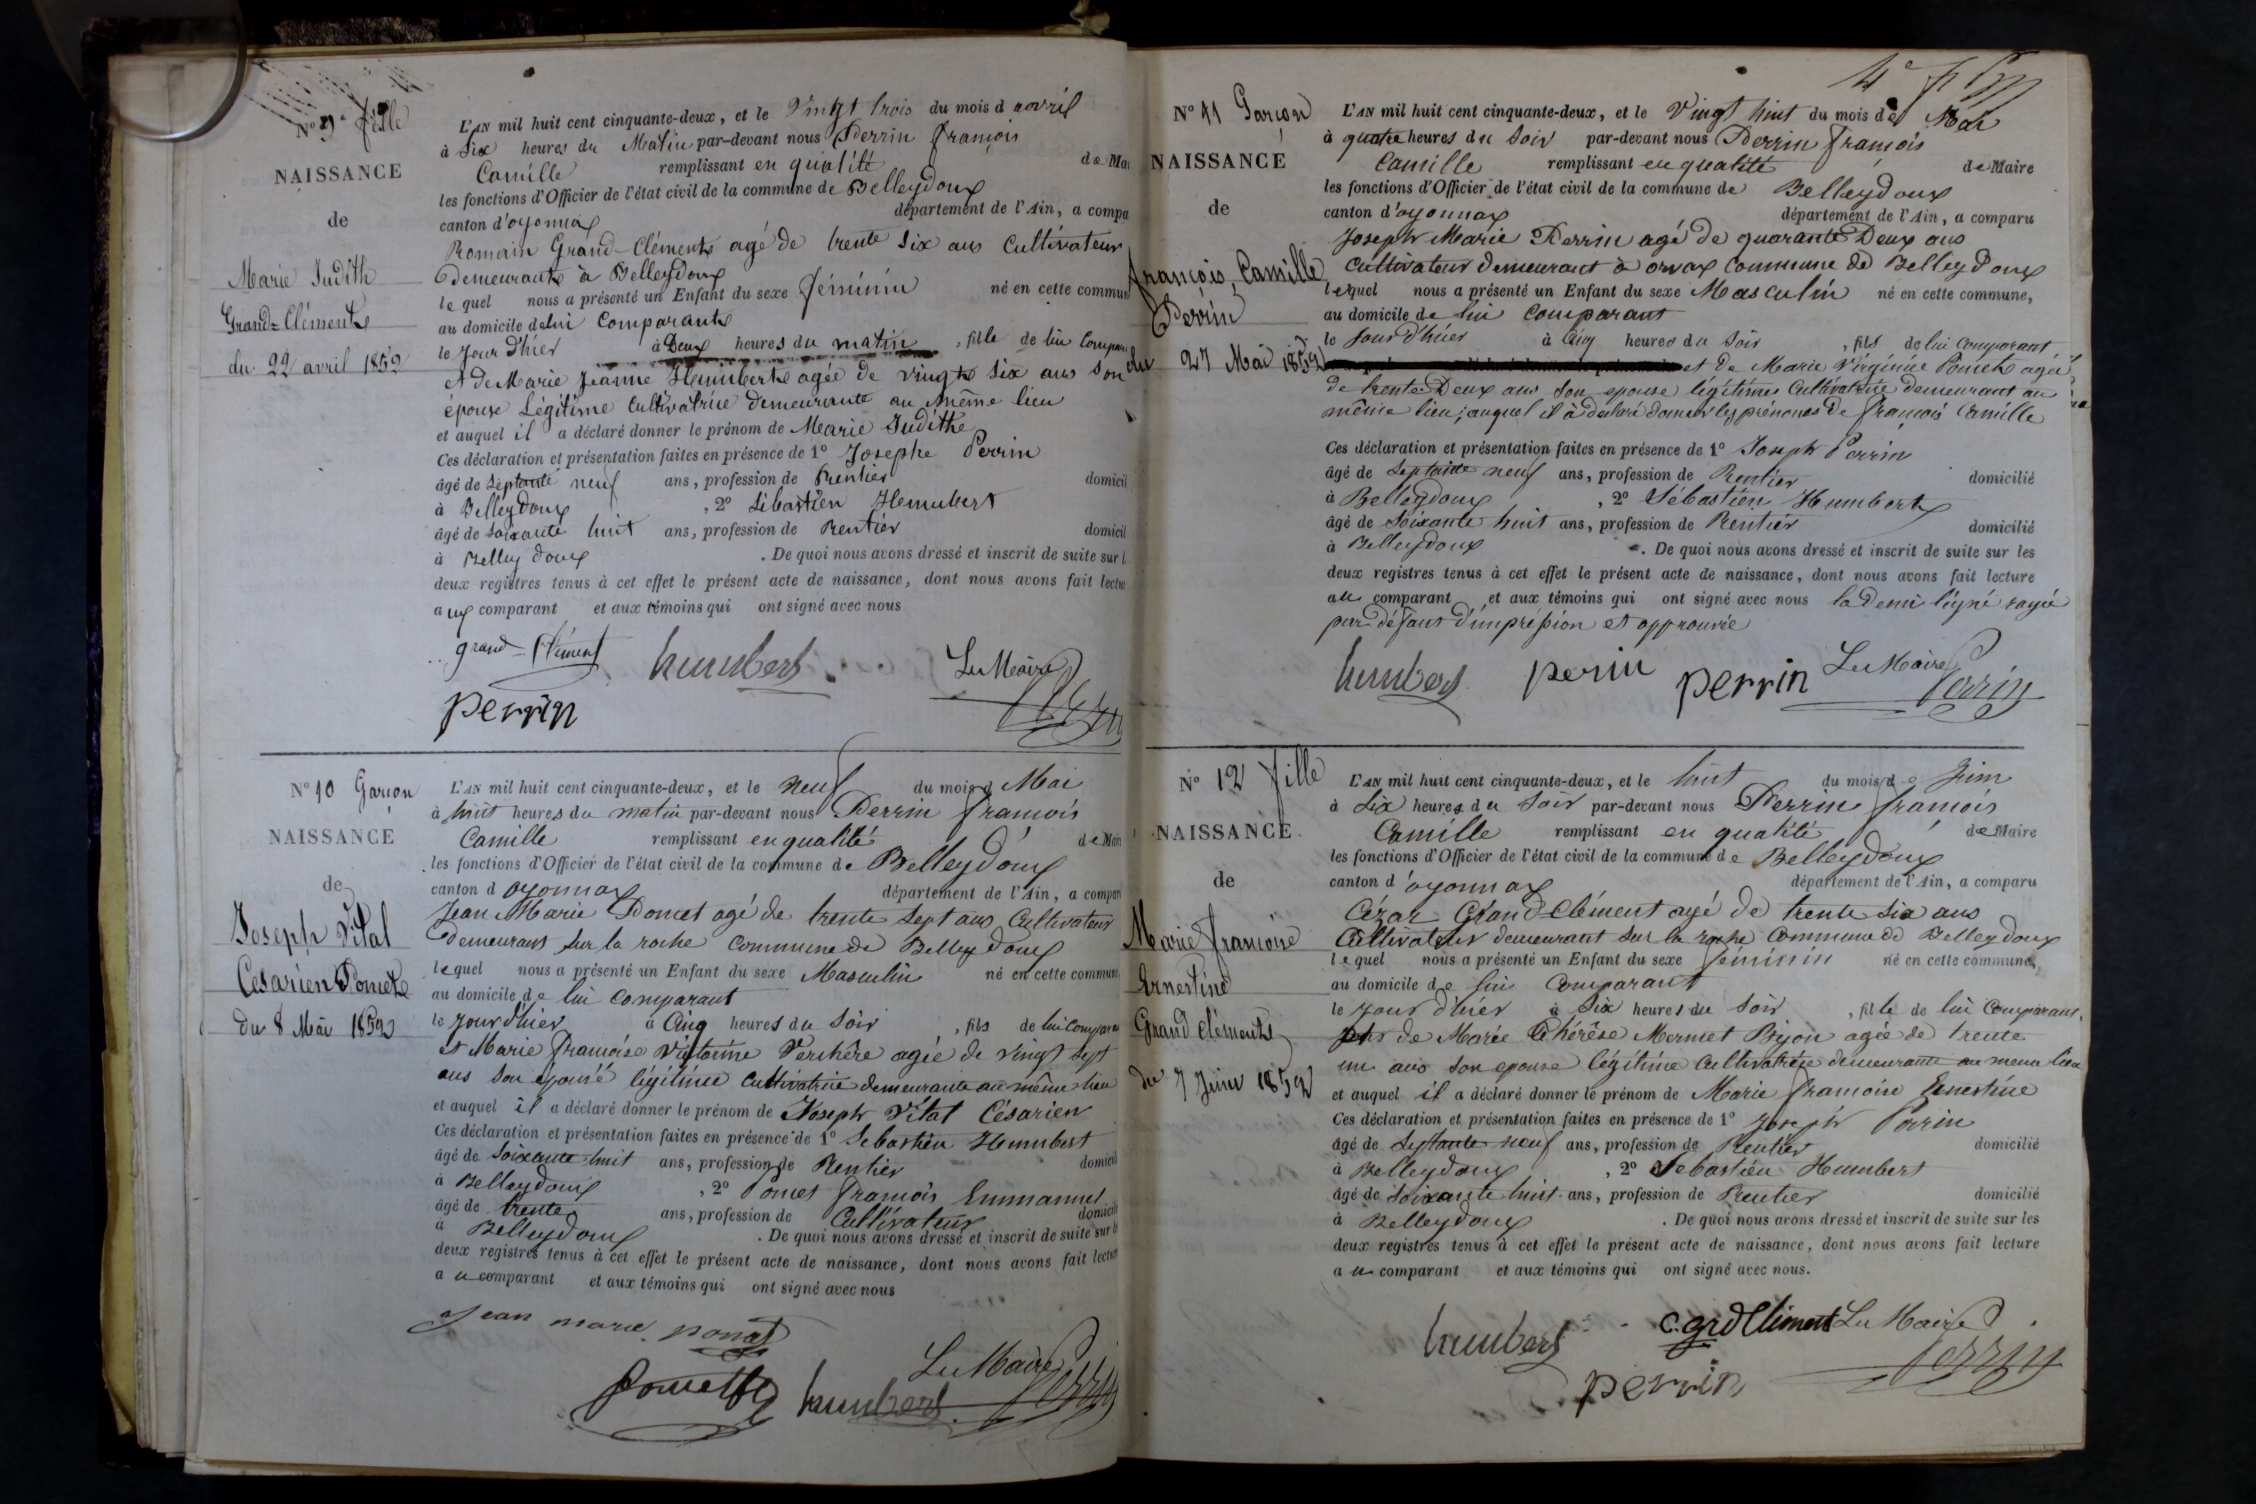 N° 9 fille
NAISSANCE
de
Marie Judith
Grand-Clément
du 22 avril 1852
L'AN mil huit cent cinquante-deux, et le Vingt trois du mois d avril
à Six heures du Matin par-devant nous Perrin François
Camille remplissant en qualité de Mai
les fonctions d'Officier de l'état civil de la commune de Belleydoux
canton d'oyonnax département de l'Ain, a compa
Romain Grand-Clément agé de trente Six ans Cultivateur
Demeurant à Belleydoux
le quel nous a présenté un Enfant du sexe féminin né en cette commun
au domicile de lui Comparant
le Jour d'hier à Deux heures du matin, fille de lui Compar
et de Marie Jeanne Humbert agée de vingt Six ans Son
épouse Légitime Cultivatrice demeurante au même lieu
et auquel il a déclaré donner le prénom de Marie Judithe
Ces déclaration et présentation faites en présence de 1° Josephe Perrin
âgé de Septante neuf ans, profession de Rentier domicil
à Belleydoux, 2° Sébastien Humbert
âgé de Soixante huit ans, profession de Rentier domicil
à Belleydoux. De quoi nous avons dressé et inscrit de suite sur l
deux registres tenus à cet effet le présent acte de naissance, dont nous avons fait lectu
aux comparant et aux témoins qui ont signé avec nous
grand-Clément humbert Le Maire
perrin Perrin
N° 10 Garçon
NAISSANCE
de
Joseph Vital
Césarien Pomet
du 8 Mai 1852
L'AN mil huit cent cinquante-deux, et le neuf du mois d Mai
à huit heures du matin par-devant nous Perrin françois
Camille remplissant en qualité de Mair
les fonctions d'Officier de l'état civil de la commune de Belleydoux
canton d oyonnax département de l'Ain, a compar
Jean Marie Pomet agé de trente Sept ans Cultivateur
Demeurant Sur la roche Commune de Belleydoux
lequel nous a présenté un Enfant du sexe Masculin né en cette commune
au domicile de lui Comparant
le Jour d'hier à Cinq heures du Soir, fils de lui Comparan
et Marie françoise Victorine Verchère agée de vingt Sept
ans Son épouse légitime Cultivatrice demeurante au même lieu
et auquel il a déclaré donner le prénom de Joseph Vital Césarien
Ces déclaration et présentation faites en présence de 1° Sebastien Humbert
âgé de Soixante-huit ans, profession de Rentier domicil
à Belleydoux, 2° Pomet françois Emmanuel
âgé de trente ans, profession de Cultivateur domicili
à Belleydoux. De quoi nous avons dressé et inscrit de suite sur l
deux registres tenus à cet effet le présent acte de naissance, dont nous avons fait lectur
au comparant et aux témoins qui ont signé avec nous
Jean marie pomet
Le Maire
humbert Perrin
4e f
N° 11 Garçon
NAISSANCE
de
françois, Camille,
Perrin
du 27 Mai 1852
L'AN mil huit cent cinquante-deux, et le Vingt huit du mois de Mai
à quatre heures du Soir par-devant nous Perrin françois
Camille remplissant en qualité de Maire
les fonctions d'Officier de l'état civil de la commune de Belleydoux
canton d'oyonnax département de l'Ain, a comparu
Joseph Marie Perrin agé de quarante Deux ans
Cultivateur demeurant à orvaz Commune de Belleydoux
lequel nous a présenté un Enfant du sexe Masculin né en cette commune,
au domicile de lui Comparant
le Jour d'hier à Cinq heures du Soir, fils de lui comparant
et de Marie Virginie Pomet agée
de trente Deux ans Son epouse légitime Cultivatrice demeurant au
même lieu; auquel il à déclaré donner les prénoms de françois Camille
Ces déclaration et présentation faites en présence de 1° Joseph Perrin
âgé de Septante neuf ans, profession de Rentier domicilié
à Belleydoux, 2° Sébastien Humbert
âgé de Soixante huit ans, profession de Rentier domicilié
à Belleydoux. De quoi nous avons dressé et inscrit de suite sur les
deux registres tenus à cet effet le présent acte de naissance, dont nous avons fait lecture
au comparant et aux témoins qui ont signé avec nous la demi ligne rayée
par défaut d'impression et approuvée
humbert perin perrin Le Maire Perrin
N° 12 fille
NAISSANCE
de
Marie françoise
Ernestine
Grand Clément
du 7 Juin 1852
L'AN mil huit cent cinquante-deux, et le huit du mois de Juin
à Six heures du Soir par-devant nous Perrin françois
Camille remplissant en qualité de Maire
les fonctions d'Officier de l'état civil de la commune de Belleydoux
canton d'oyonnax département de l'Ain, a comparu
Cézar Grand-Clément agé de trente Six ans
Cultivateur demeurant Sur la roche Commune de Belleydoux
lequel nous a présenté un Enfant du sexe féminin né en cette commune,
au domicile de lui Comparant
le Jour d'hier à Six heures du Soir, fille de lui Comparant,
de Marie Thérèse Mermet Bijon agée de trente
un ans Son epouse légitime Cultivatrice demeurante au meme lieu
et auquel il a déclaré donner le prénom de Marie françoise Ernestine
Ces déclaration et présentation faites en présence de 1° Joseph Perrin
âgé de Septante neuf ans, profession de Rentier domicilié
à Belleydoux, 2° Sebastien Humbert
âgé de Soixante huit ans, profession de Rentier domicilié
à Belleydoux. De quoi nous avons dressé et inscrit de suite sur les
deux registres tenus à cet effet le présent acte de naissance, dont nous avons fait lecture
au comparant et aux témoins qui ont signé avec nous.
humbert c. grd Clément Le Maire
perrin Perrin